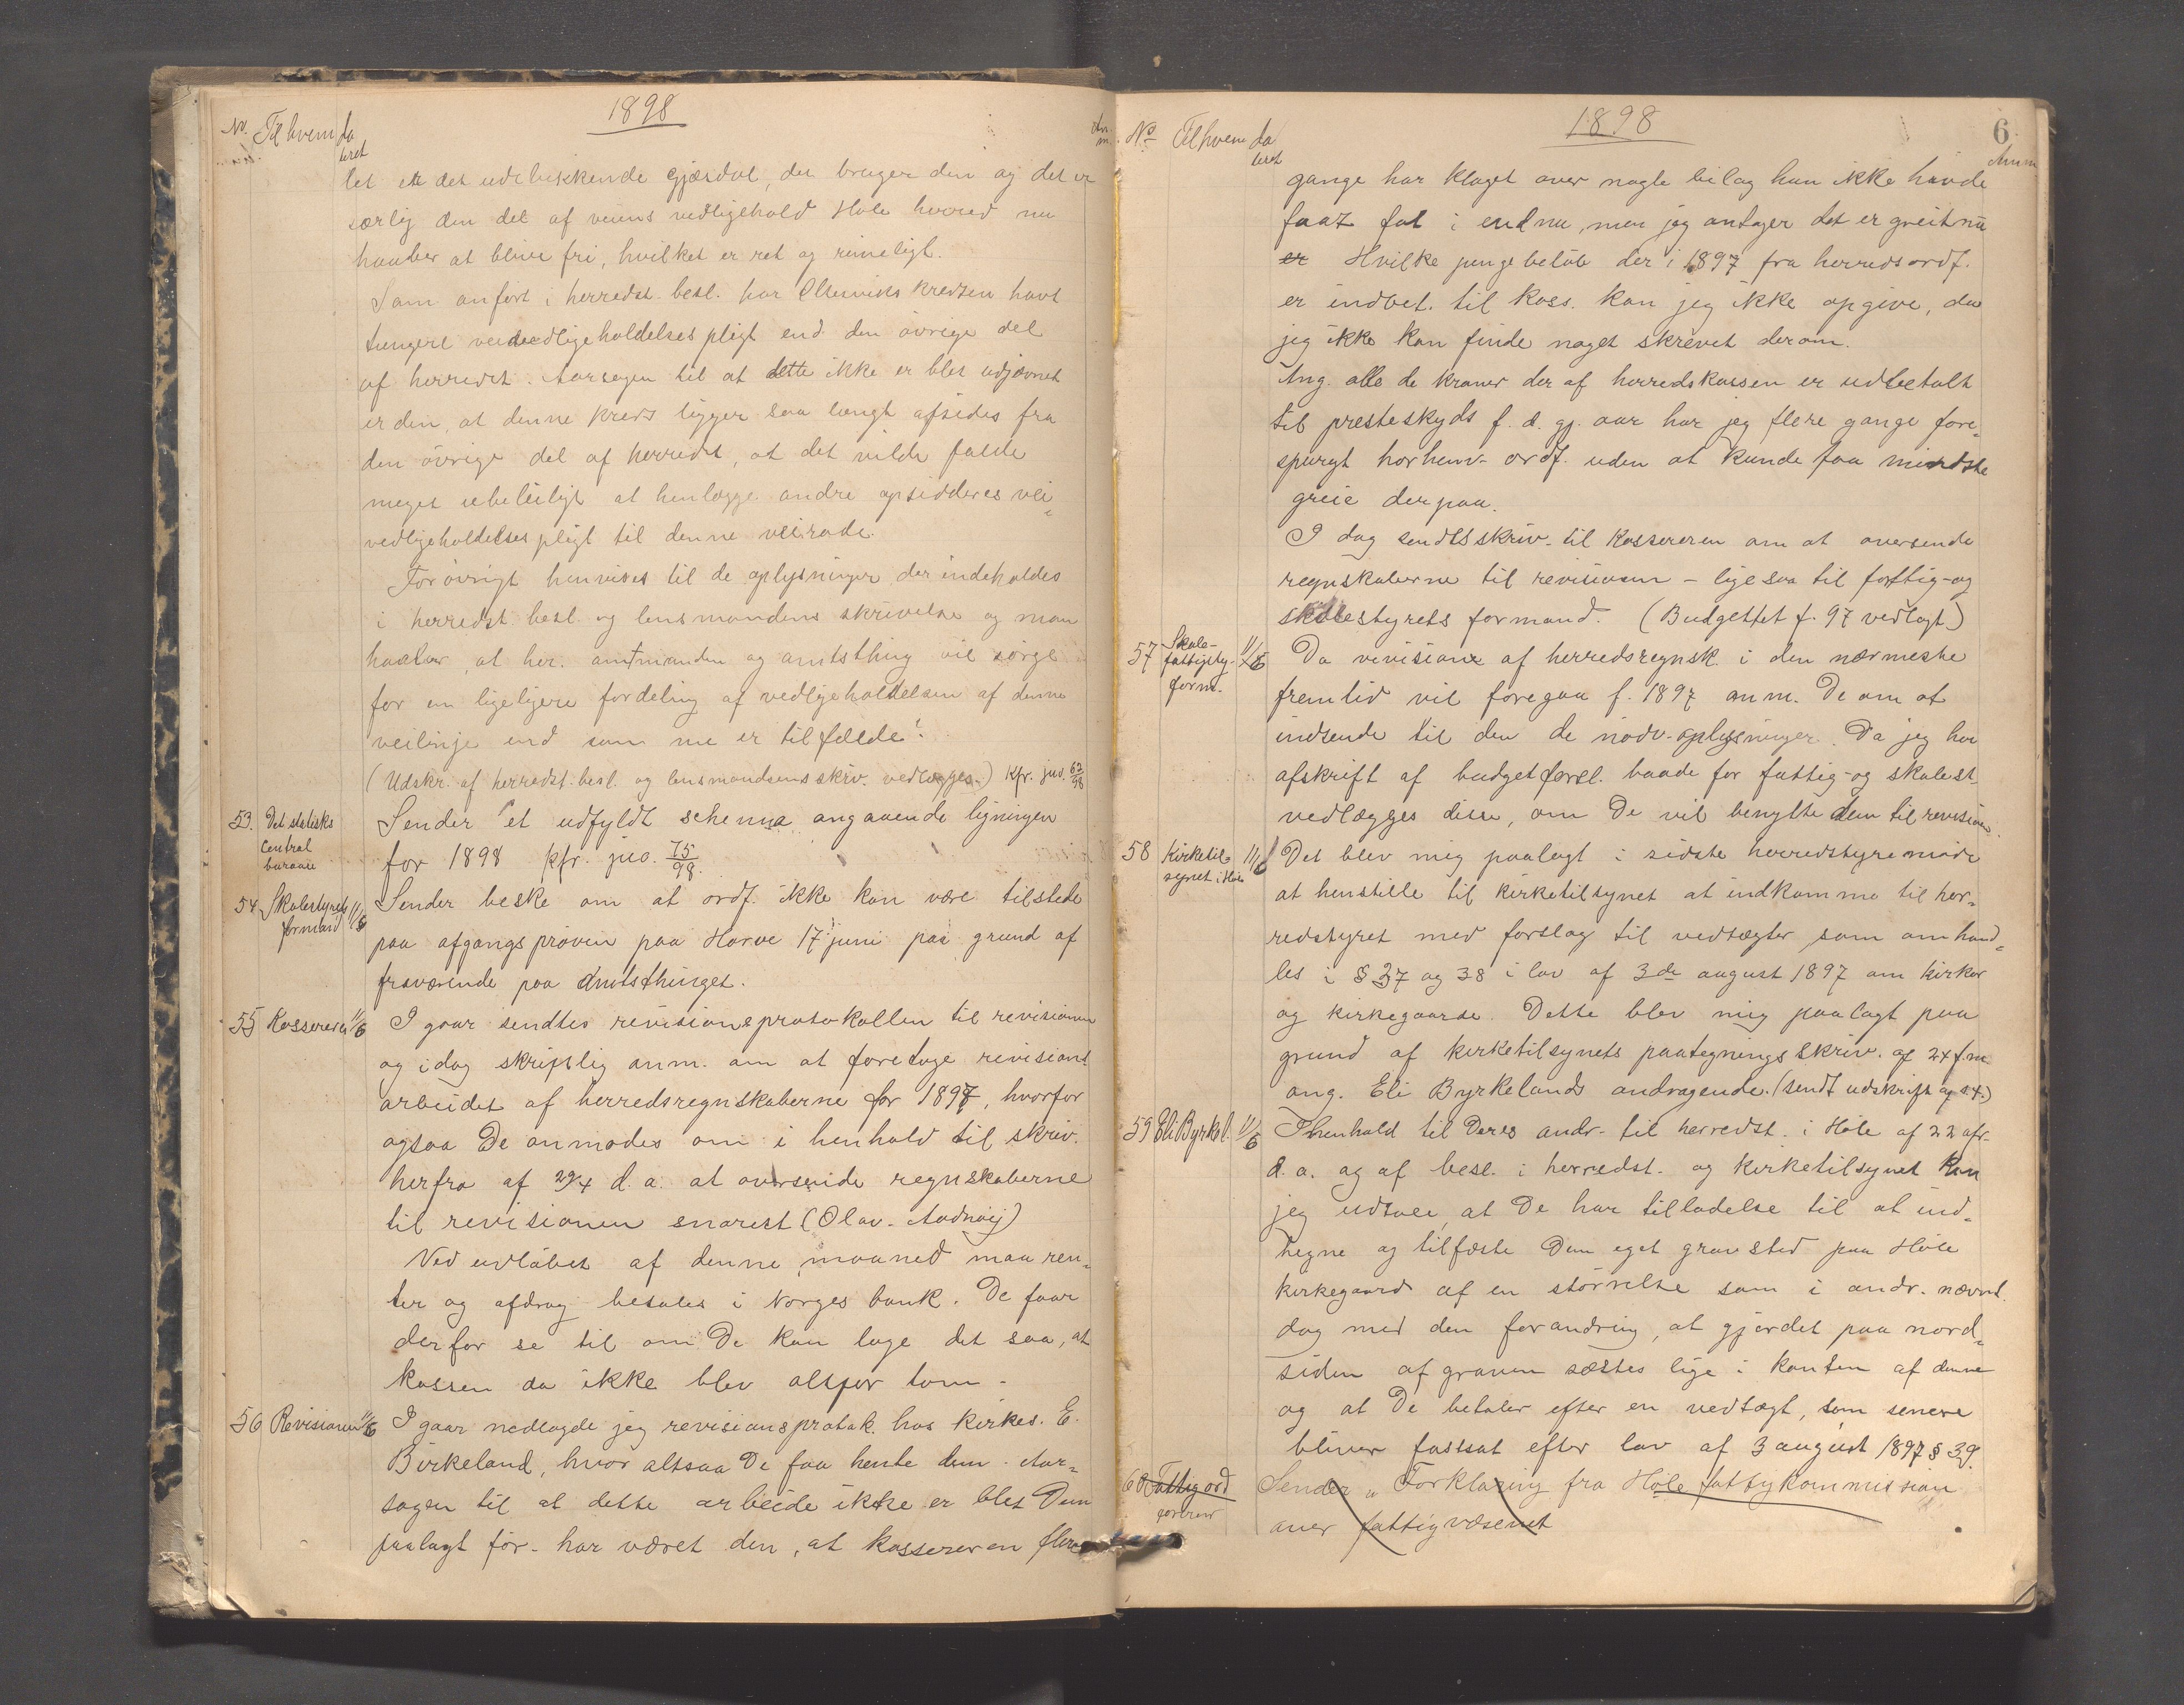 1898
No. Til hvem da
teret
let er det udelukkende Gjæsdal, der bruger den og det er
særlig den del af veiens vedligehold Høle herred nu
haaber at blive fri, hvilket er ret og rimeligt.
Som anført i herredst. besl. har Oltesviks kredsen havt
tungere veivedligeholdelsespligt end den øvrige del
af herredet. Aarsagen til at dette ikke er blet udjævnet
er den, at denne kreds ligger saa langt afsides fra
den øvrige del af herredet, at det vilde falde
meget ubeleiligt at henlægge andre opsidderes vei-
vedligeholdelsespligt til denne veirode.
Forøvrigt henvises til de oplysninger der indeholdes
i herredst. besl. og lensmandens skrivelse og man
haaber, at hr. amtmanden og amtsthing vil sørge
for en ligeligere fordeling af vedligeholdelsen af denne
veilinje end som nu er tilfælde!
(Udskr. af herredst. besl. og lensmandsens skriv. vedlægges.) Kfr. jus. 62/98
53. Det statistiske Central bureau Sender et udfyldt schema angaaende ligningen
for 1898 kfr. juo. 75/98.
54 Skolestyrets formand 11/6 Sender beske om at ordf. ikke kan være tilstede
paa afgangsprøven paa Horve 17 juni paa grund af
fraværende paa Amtsthinget.
55 Kassereren 11/6 I gaar sendtes revisionsprotokollen til revisionen
og idag skriftlig anm. om at foretage revisions
arbeidet af herredsregnskaberne for 1897, hvorfor
ogsaa De anmodes om i henhold til skriv.
herfra af 29/4 d. a. at oversende regnskaberne
til revisionen snarest (Olav. Aadnøij)
Ved udløbet af denne maaned maa ren-
ter og afdrag betales i Norges bank. De faar
derfor se til om De kan lage det saa, at
kassen da ikke blev altfor tom.
56 Revisionen 11/6 I gaar nedlagde jeg revisionsprotok. hos kirkes. E.
Birkeland, hvor altsaa De faa hente den. Aar-
sagen til at dette arbeide ikke er blet Dem
paalagt før. har været den, at kassereren flere
1898
6
No Til hvem da
teret
Anm
gange har klaget over nogle bilag han ikke havde
faat fat i endnu, men jeg antager det er greit nu
er Hvilke pengebeløb der i 1897 fra herredsordf.
er indbet. til kass. kan jeg ikke opgive, da
jeg ikke kan finde noget skrevet derom.
Ang. alle de kroner der af herredskassen er udbetalt
til presteskyds f. d. gj. aar har jeg flere gange fore-
spurgt horhenv. ordf. uden at kunde faa mindste
greie derpaa.
I dag sendts skriv. til Kassereren om at oversende
regnskaberne til revisionen – ligesaa til fattig- og
skolestyrets formand. (Budgettet f. 97 vedlagt)
57 Skole- fattigsty- form. 11/6 Da revisione af herredsregnsk. i den nærmeste
fremtid vil foregaa f. 1897 anm. De om at
indsende til den de nødv. oplysninger. Da jeg har
afskrift af budgetforsl. baade for fattig- og skolest.
vedlægges disse, om De vil benytte dem til revision.
58 Kirketil- synet i Høle 11/6 Det blev mig paalagt i sidste herredstyremøde
at henstille til kirketilsynet at indkomme til her-
redstyret med forslag til vedtægter, som omhand-
les i § 37 og 38 i lov af 3de august 1897 om kirker
og kirkegaarde. Dette blev mig paalagt paa
grund af kirketilsynets paategnings skriv. af 24 f.m.
ang. Eli Byrkelands andragende. (sendt udskrift af s.t.)
59 Eli Byrkel. 11/6 I henhold til Deres andr. til herredst. i Høle af 22 apr.
d. a. og af besl. i herredst. og kirketilsynet kan
jeg udtale, at De har tilladelse til at ind-
hegne og tilfæste Dem eget gravsted paa Høle
kirkegaard af en størrelse som i andr. nævnt.
dog med den forandring, at gjerdet paa nord-
siden af graven sættes lige i kanten af denne
og at De betaler efter en vedtægt, som senere
bliver fastsat efter lov af 3 august 1897 § 39.
60 Fattigord Sender „Forklaring fra Høle fattigkommission
over fattigvæsenet